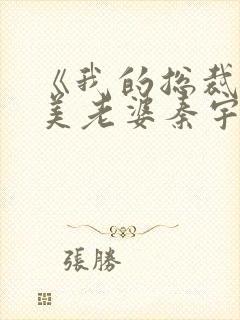 《我的总裁
美老婆秦宇
張勝